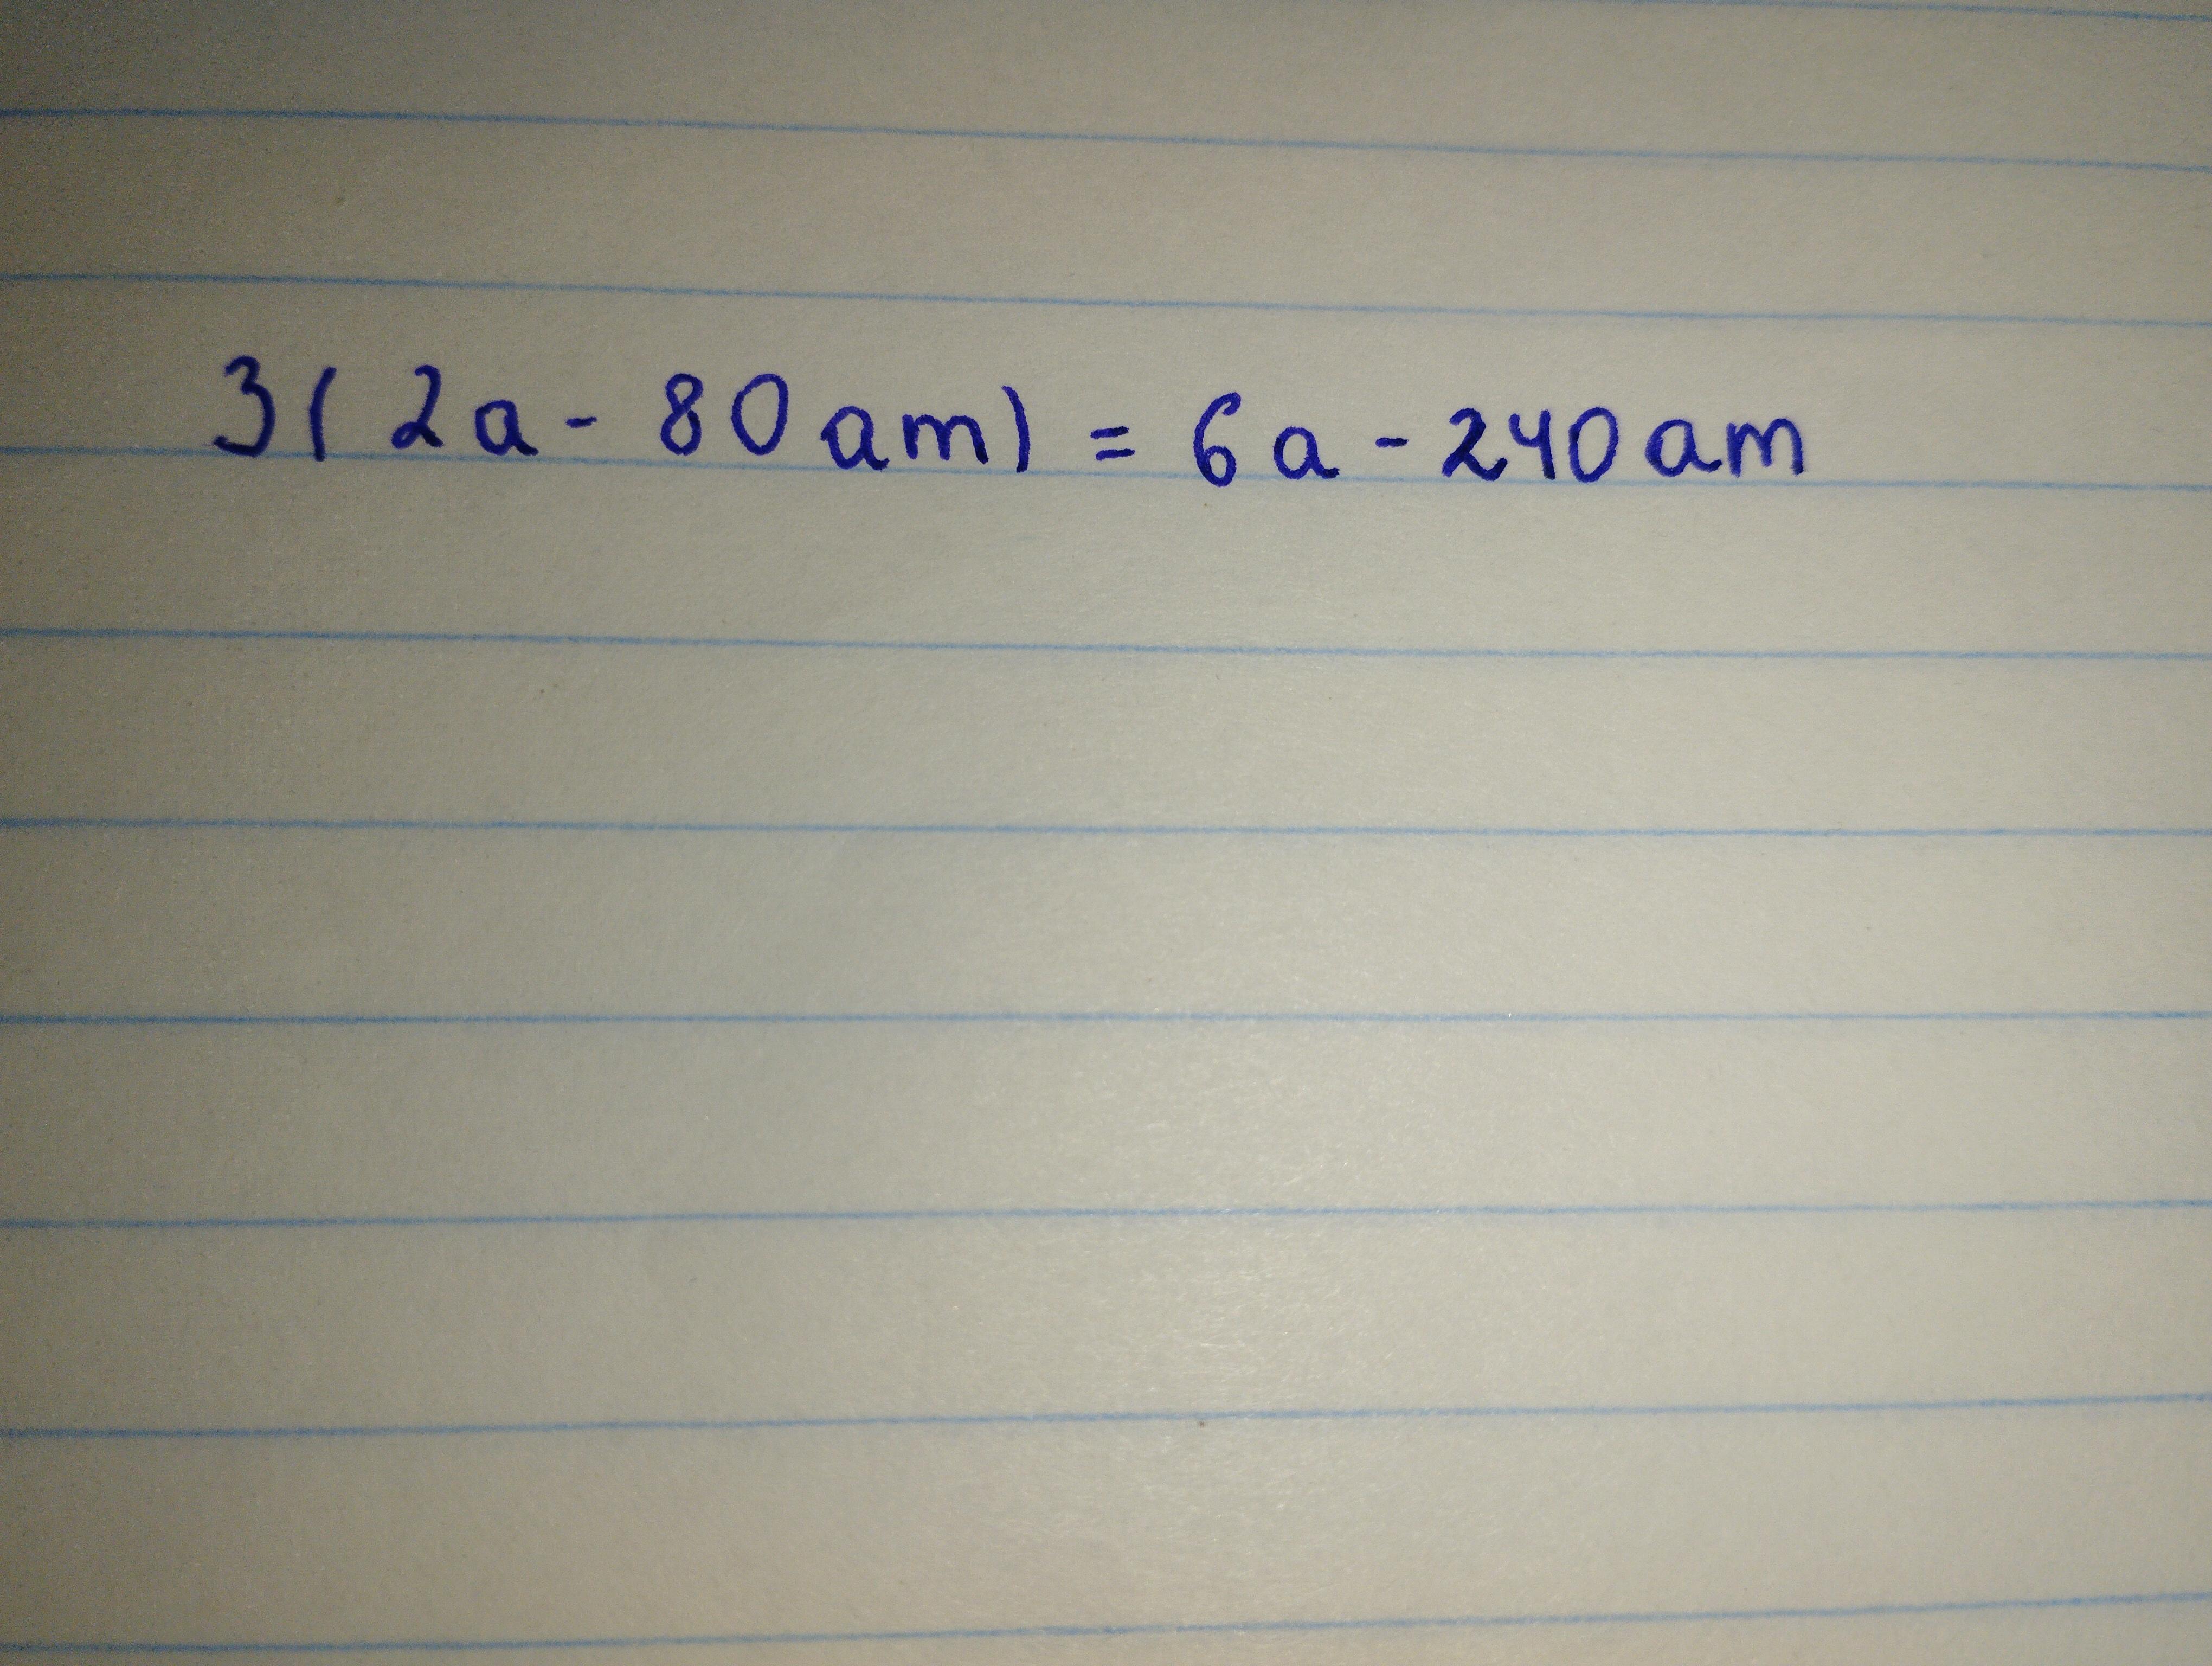 3( 2a - 80am) = 6a - 240am